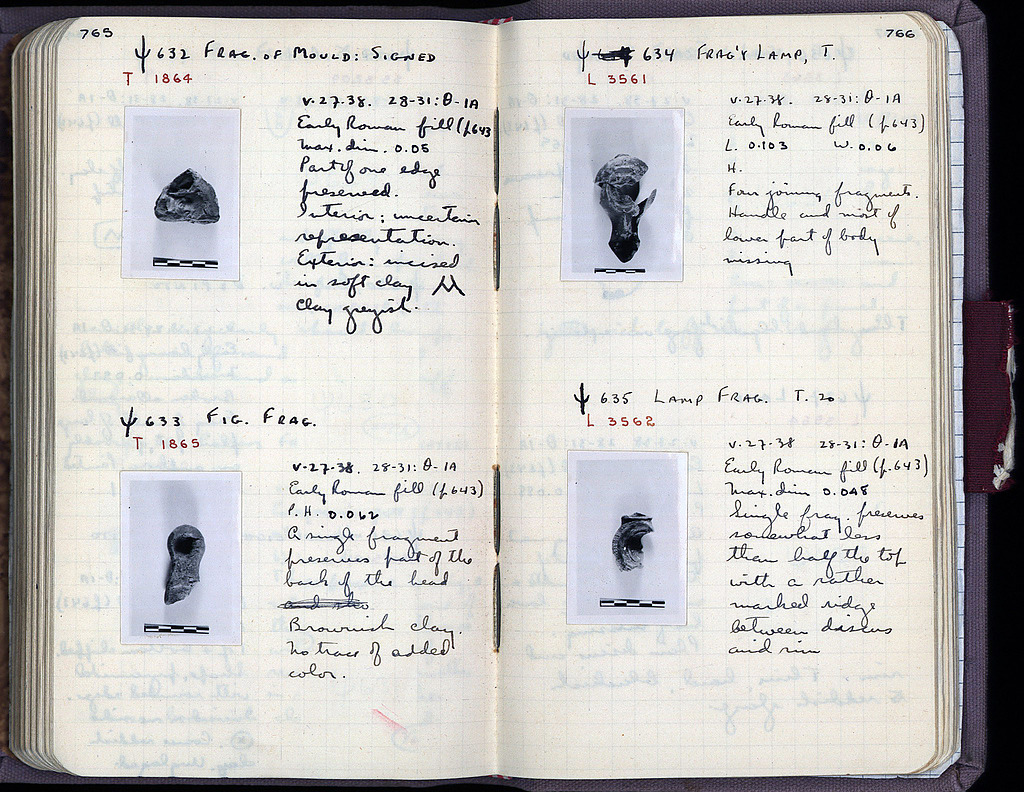 765
Ψ 632 FRAG. OF MOULD: SIGNED
T 1864
V.27.38. 28-31:Θ-1A
Early Roman fill (p.643)
Max. dim. 0.05
Part of one edge
preserved.
Interior: uncertain
representation.
Exterior: incised
in soft clay
clay greyish.
Ψ 633 FIG. FRAG.
T 1865
V.27.38. 28-31:Θ-1A
Early Roman fill (p.643)
P.H. 0.062
A single fragment
preserves part of the
back of the head
Brownish clay.
No trace of added
color.
766
Ψ 634 FRAG'Y LAMP, T.
L 3561
V.27.38. 28-31:Θ-1A
Early Roman fill (p.643)
L. 0.103 W. 0.06
H.
Four joining fragments.
Handle and most of
lower part of body
missing
Ψ 635 LAMP FRAG. T. 20
L 3562
V.27.38 28-31:Θ-1A
Early Roman fill (p.643)
Max. dim 0.048
Single frag. preserves
somewhat less
than half the top
with a rather
marked ridge
between discus
and rim